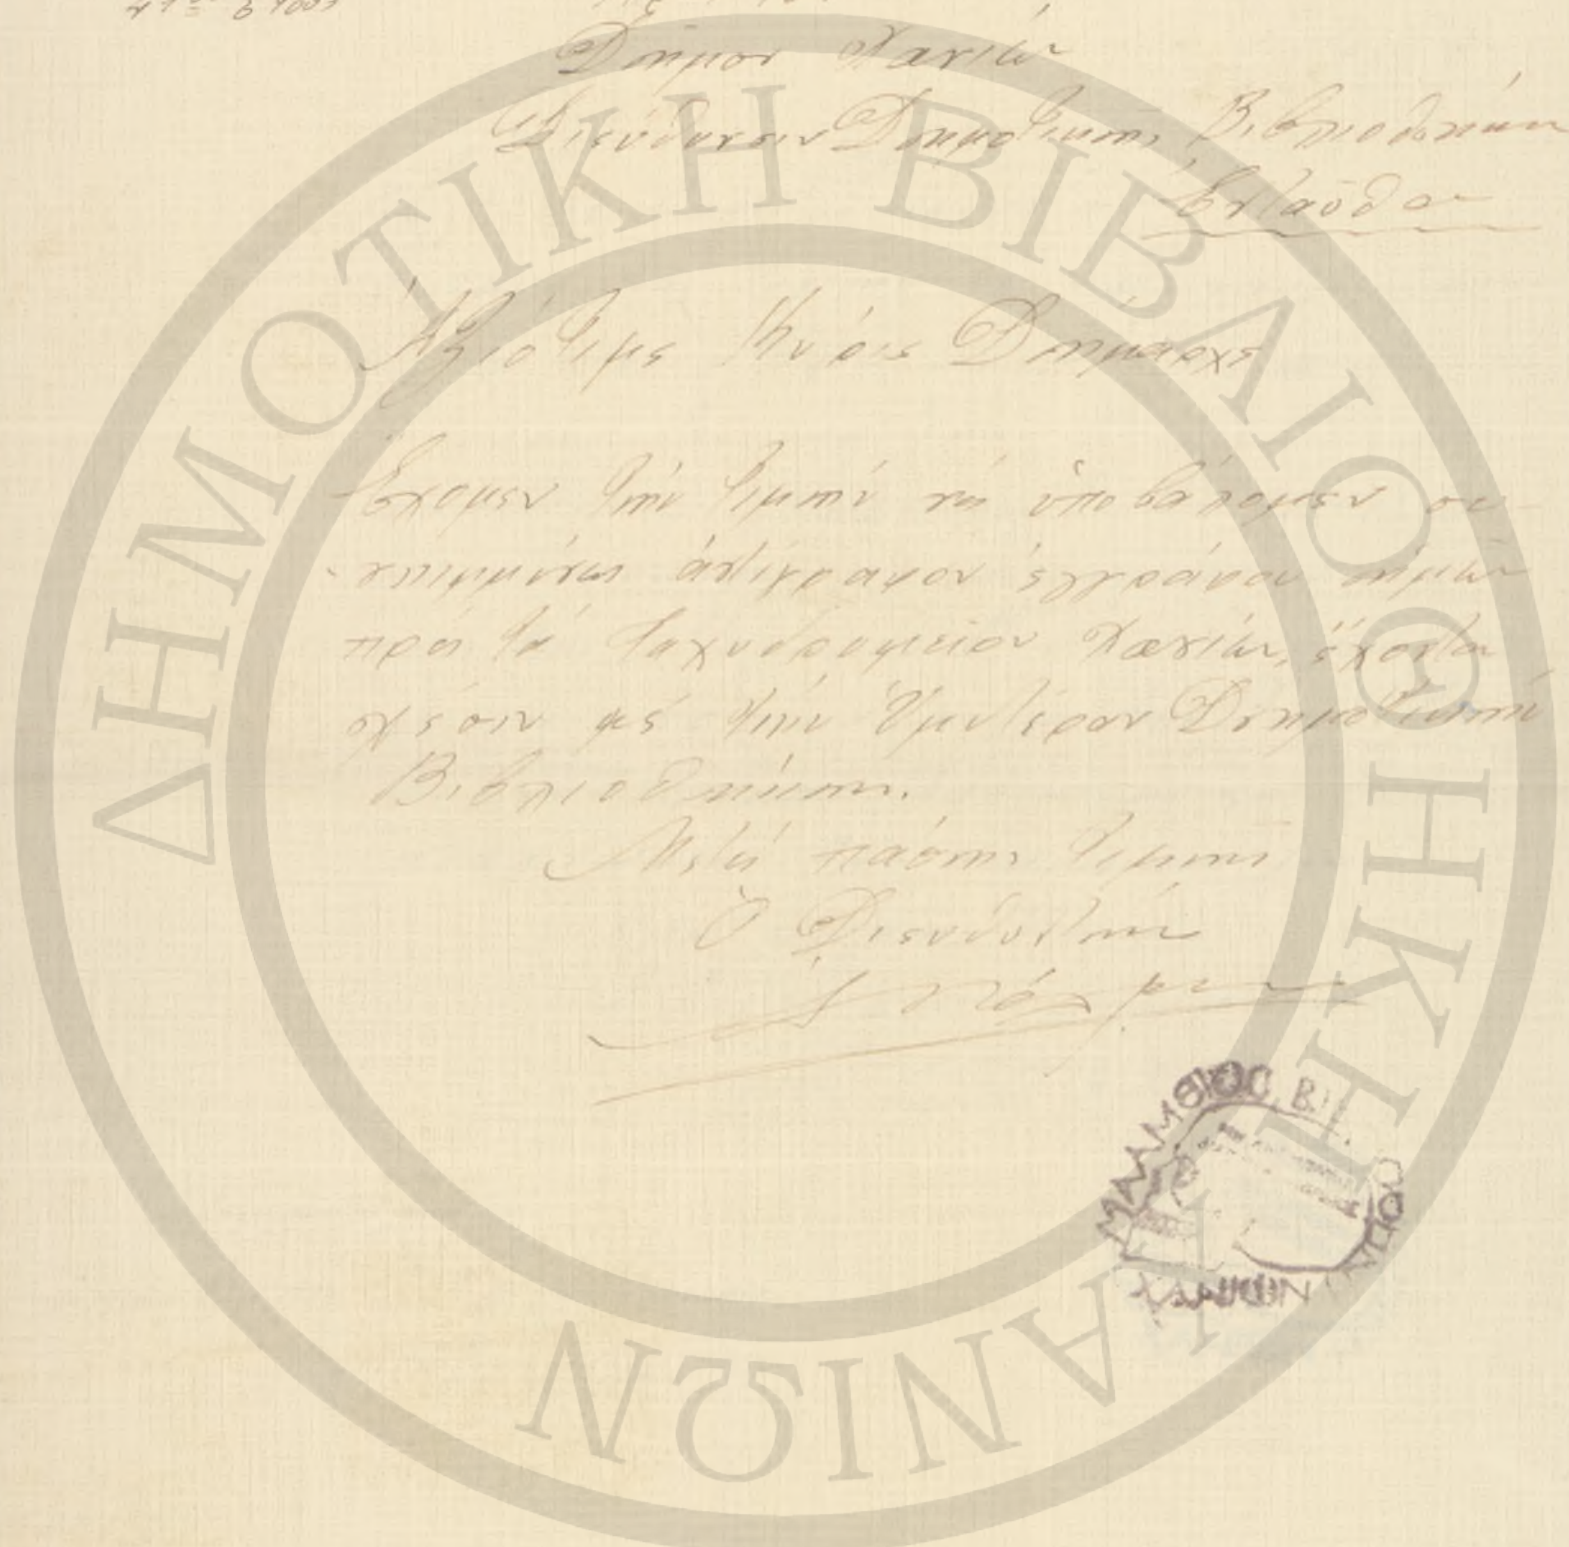 Δῆμον Χανίων
Διεύθυνσιν Δημοτικῆς Βιβλιοθήκης
Ἐνταῦθα
Ἀξιότιμε Κύριε Δήμαρχε
Ἔχομεν τὴν τιμὴν νὰ ὑποβάλομεν συ-
-νημμένως ἀντίγραφον ἐγγράφου ἡμῶν
πρὸς τὸ Ταχυδρομεῖον Χανίων, ἔχοντα
σχέσιν μὲ τὴν Ὑμετέραν Δημοτικὴν
Βιβλιοθήκην.
Μετὰ πάσης τιμῆς
Ὁ Διευθυντὴς
ΔΗΜΟΤΙΚΗ ΒΙΒΛΙΟΘΗΚΗ
ΧΑΝΙΩΝ
ΧΑΝΙΩΝ